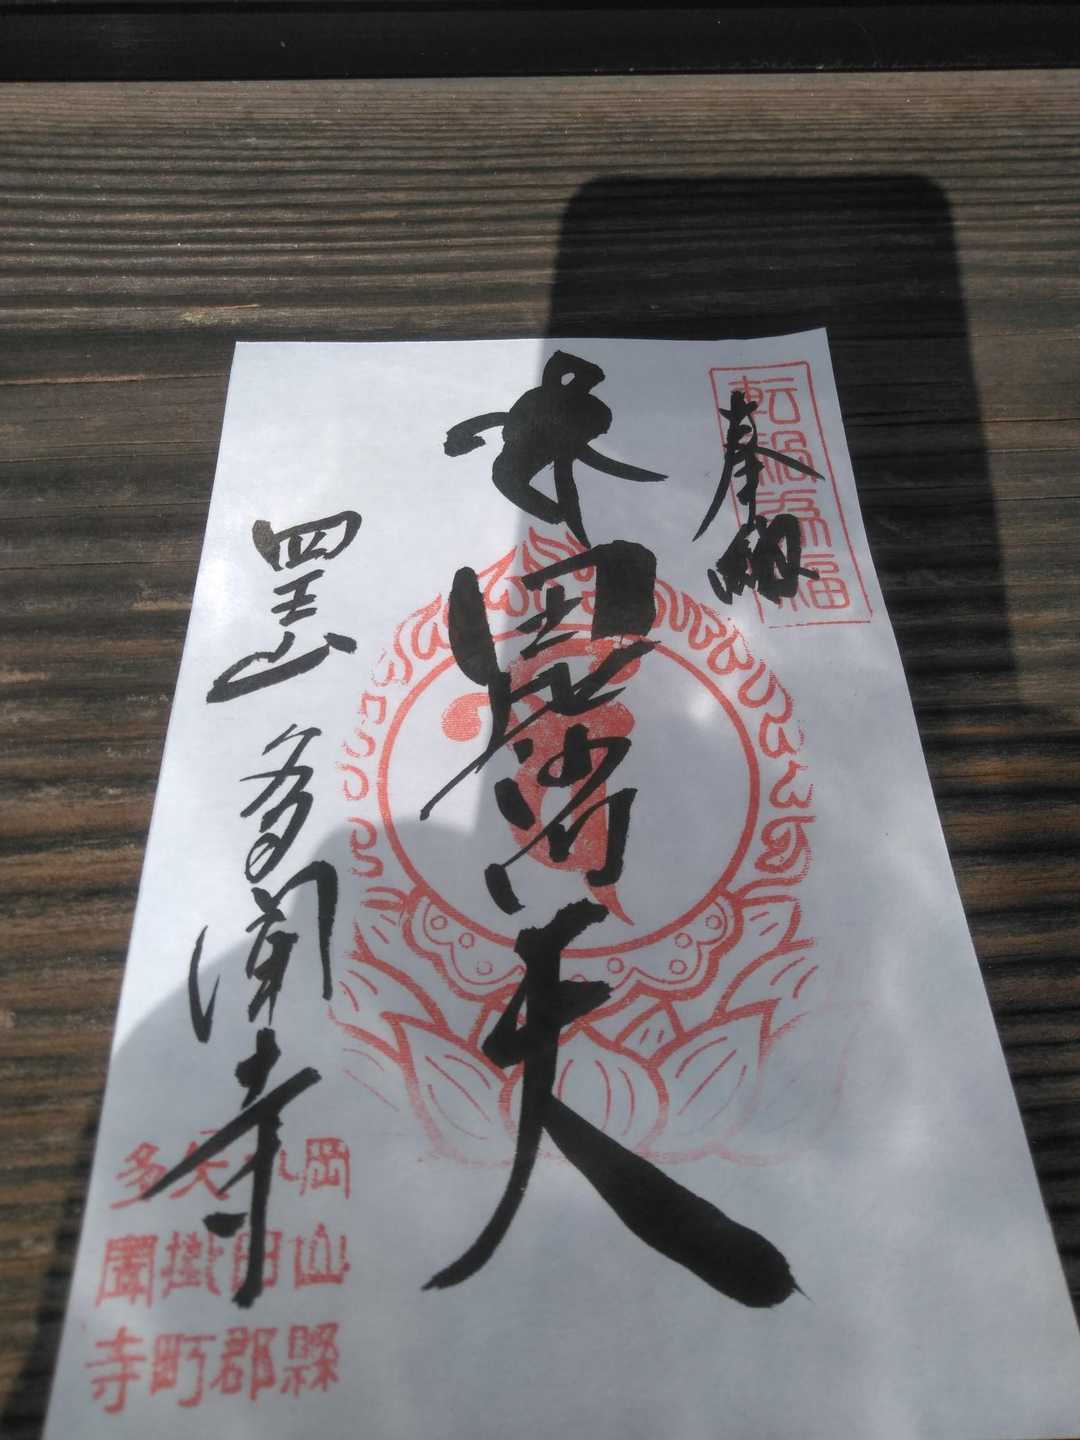 転禍為福
奉納
毘沙門天
四王山 多聞寺
岡山縣
小田郡
矢掛町
多聞寺